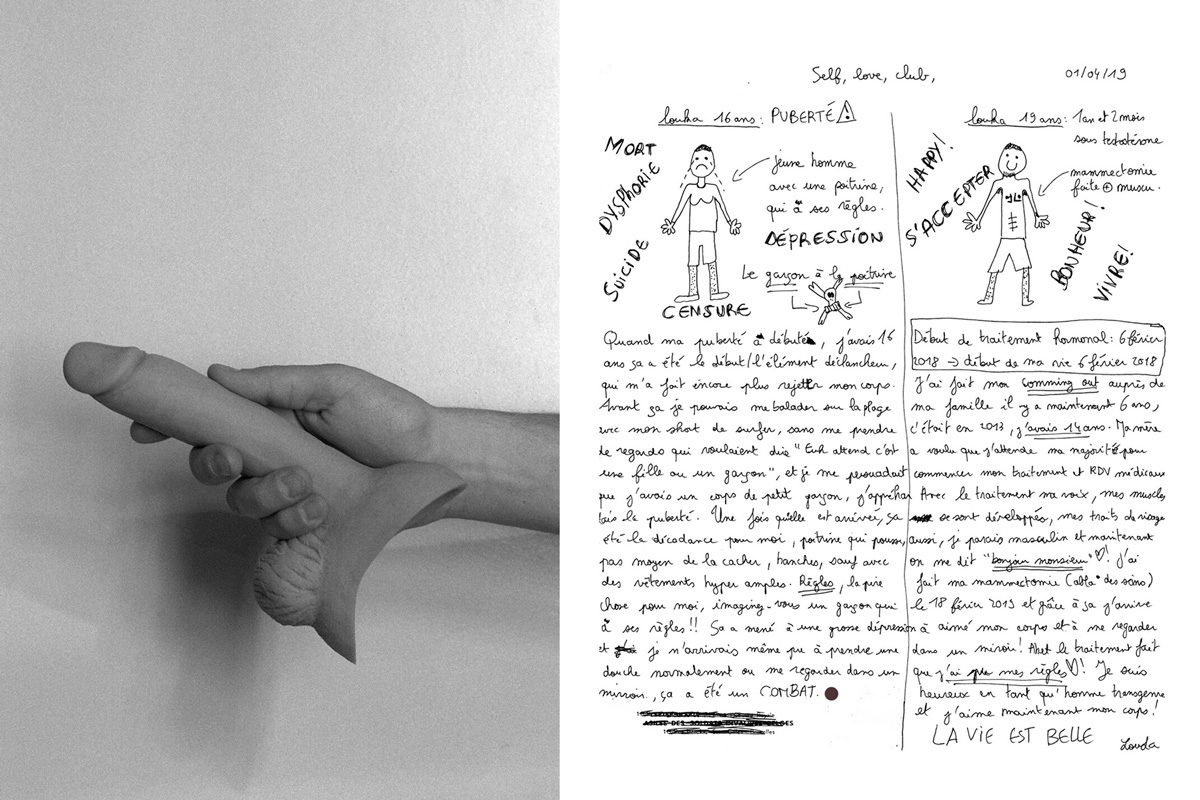 Self, love, club,
01/04/19
Louka 16 ans : PUBERTÉ
MORT
DYSPHORIE
SUICIDE
jeune homme
avec une poitrine,
qui a ses règles.
DÉPRESSION
Le garçon à la poitrine
CENSURE
Quand ma puberté a débuté, j'avais 16
ans ça a été le début/l'élément déclancheur,
qui m'a fait encore plus rejetter mon corps.
Avant ça je pouvais me balader sur la plage
avec mon short de surfer, sans me prendre
de regards qui voulaient dire "Euh attend c'est
une fille ou un garçon", et je me persuadait
que j'avais un corps de petit garçon, j'appréhen
tais la puberté. Une fois qu'elle est arrivée, ça
été la décadance pour moi, poitrine qui pousse,
pas moyen de la cacher, hanches, sauf avec
des vêtements hyper amples. Règles, la pire
chose pour moi, imaginez-vous un garçon qui
a ses règles!! Ça a mené à une grosse dépression
et je n'arrivais même pu à prendre une
douche normalement ou me regarder dans un
mirroir, ça a été un COMBAT.
Louka 19 ans : 1 an et 2 mois
sous testostérone
HAPPY!
S'ACCEPTER
mammectomie
faite + muscu.
BONHEUR!
VIVRE!
Début de traitement hormonal : 6 février
2018 → début de ma vie 6 février 2018
J'ai fait mon comming out auprès de
ma famille il y a maintenant 6 ans,
c'était en 2013, j'avais 14 ans. Ma mère
a voulu que j'attende ma majorité pour
commencer mon traitement et RDV médicaux
Avec le traitement ma voix, mes muscles
se sont développés, mes traits de visage
aussi, je parais masculin et maintenant
on me dit "bonjour monsieur"♡! J'ai
fait ma mammectomie (abla° des seins)
le 18 février 2019 et grâce à ça j'arrive
à aimé mon corps et à me regarder
dans un miroir! Et le traitement fait
que j'ai pu mes règles♡! Je suis
heureux en tant qu'homme transgenre
et j'aime maintenant mon corps!
LA VIE EST BELLE
Louka